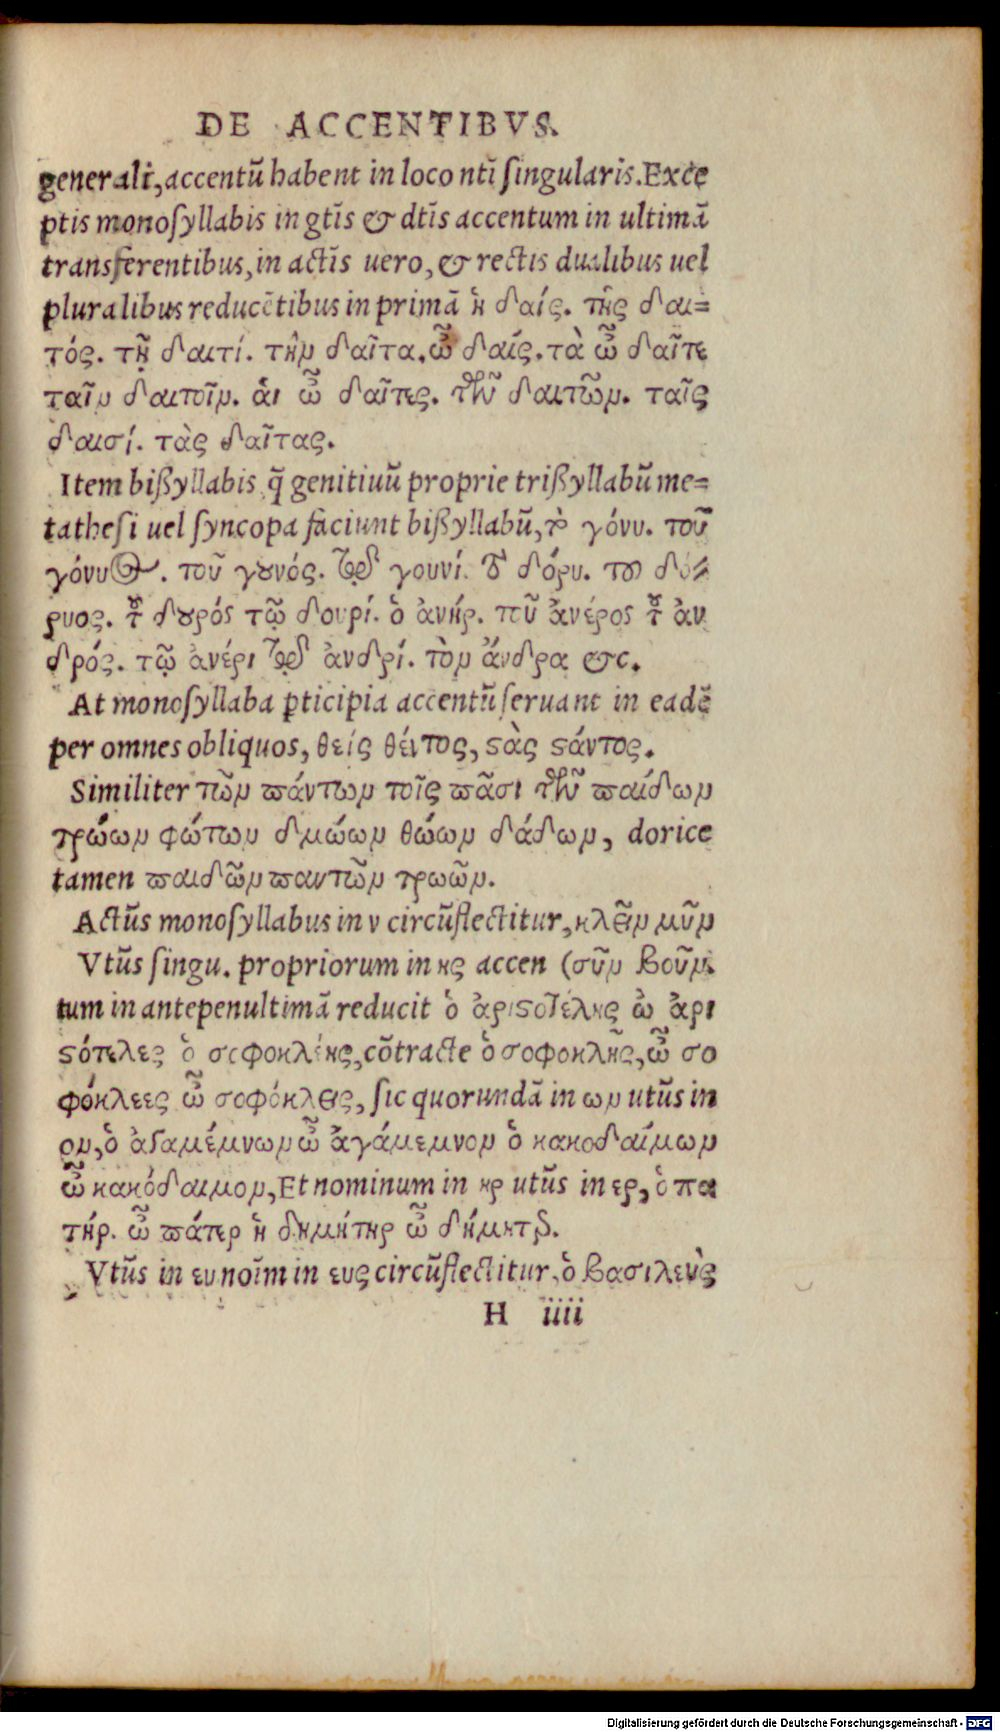 DE ACCENTIBVS.
generali, accentũ habent in loco ntĩ singularis. Exce
ptis monosyllabis in gtĩs & dtĩs accentum in ultimã
transferentibus, in actĩs uero, & rectis dualibus uel
pluralibus reducẽtibus in primã ἡ δαίς. τῆς δαι=
τός. τῇ δαιτί. τὴν δαῖτα. ὦ δαίς. τὰ ὦ δαῖτε
ταῖν δαιτοῖν. ἁι ὦ δαῖτες. τῶν δαιτῶν. ταῖς
δαισί. τὰς δαῖτας.
Item bissyllabis q̃ genitiuũ proprie trissyllabũ me=
tathesi uel syncopa faciunt bissyllabũ, τὸ γόνυ. τοῦ
γόνυος. τοῦ γουνός. τῷ γουνί. τὸ δόρυ. του δό=
ρυος. τοῦ δουρός τῷ δουρί. ὁ ἀνήρ. τοῦ ἀνέρος τοῦ ἀν
δρός. τῷ ἀνέρι τῷ ἀνδρί. τὸν ἄνδρα &c.
At monosyllaba ꝑticipia accentũ seruant in eadẽ
per omnes obliquos, θείς θέντος, ϛὰς ϛάντος.
Similiter τῶν πάντων τοῖς πᾶσι τῶν παίδων
τρώων φώτων δμώων θώων δάδων, dorice
tamen παιδῶν παντῶν τρωῶν.
Actũs monosyllabus in ν circũflectitur, κλεῖν μῦν
Vtũs singu. propriorum in ης accen (σῦν βοῦν.
tum in antepenultimã reducit ὁ ἀριϛοτέλης ὦ ἀρι
ϛότελες ὁ σοφοκλέης, cõtracte ὁ σοφοκλῆς, ὦ σο
φόκλεες ὦ σοφόκλεις, sic quorundã in ων utũs in
ον, ὁ ἀγαμέμνων ὦ ἀγάμεμνον ὁ κακοδαίμων
ὦ κακόδαιμον, Et nominum in ηρ utũs in ερ, ὁ πα
τήρ. ὦ πάτερ ἡ δημήτηρ ὦ δήμητερ.
Vtũs in ευ noĩm in ευς circũflectitur, ὁ βασιλεὺς
H iiii
Digitalisierung gefördert durch die Deutsche Forschungsgemeinschaft - DFG